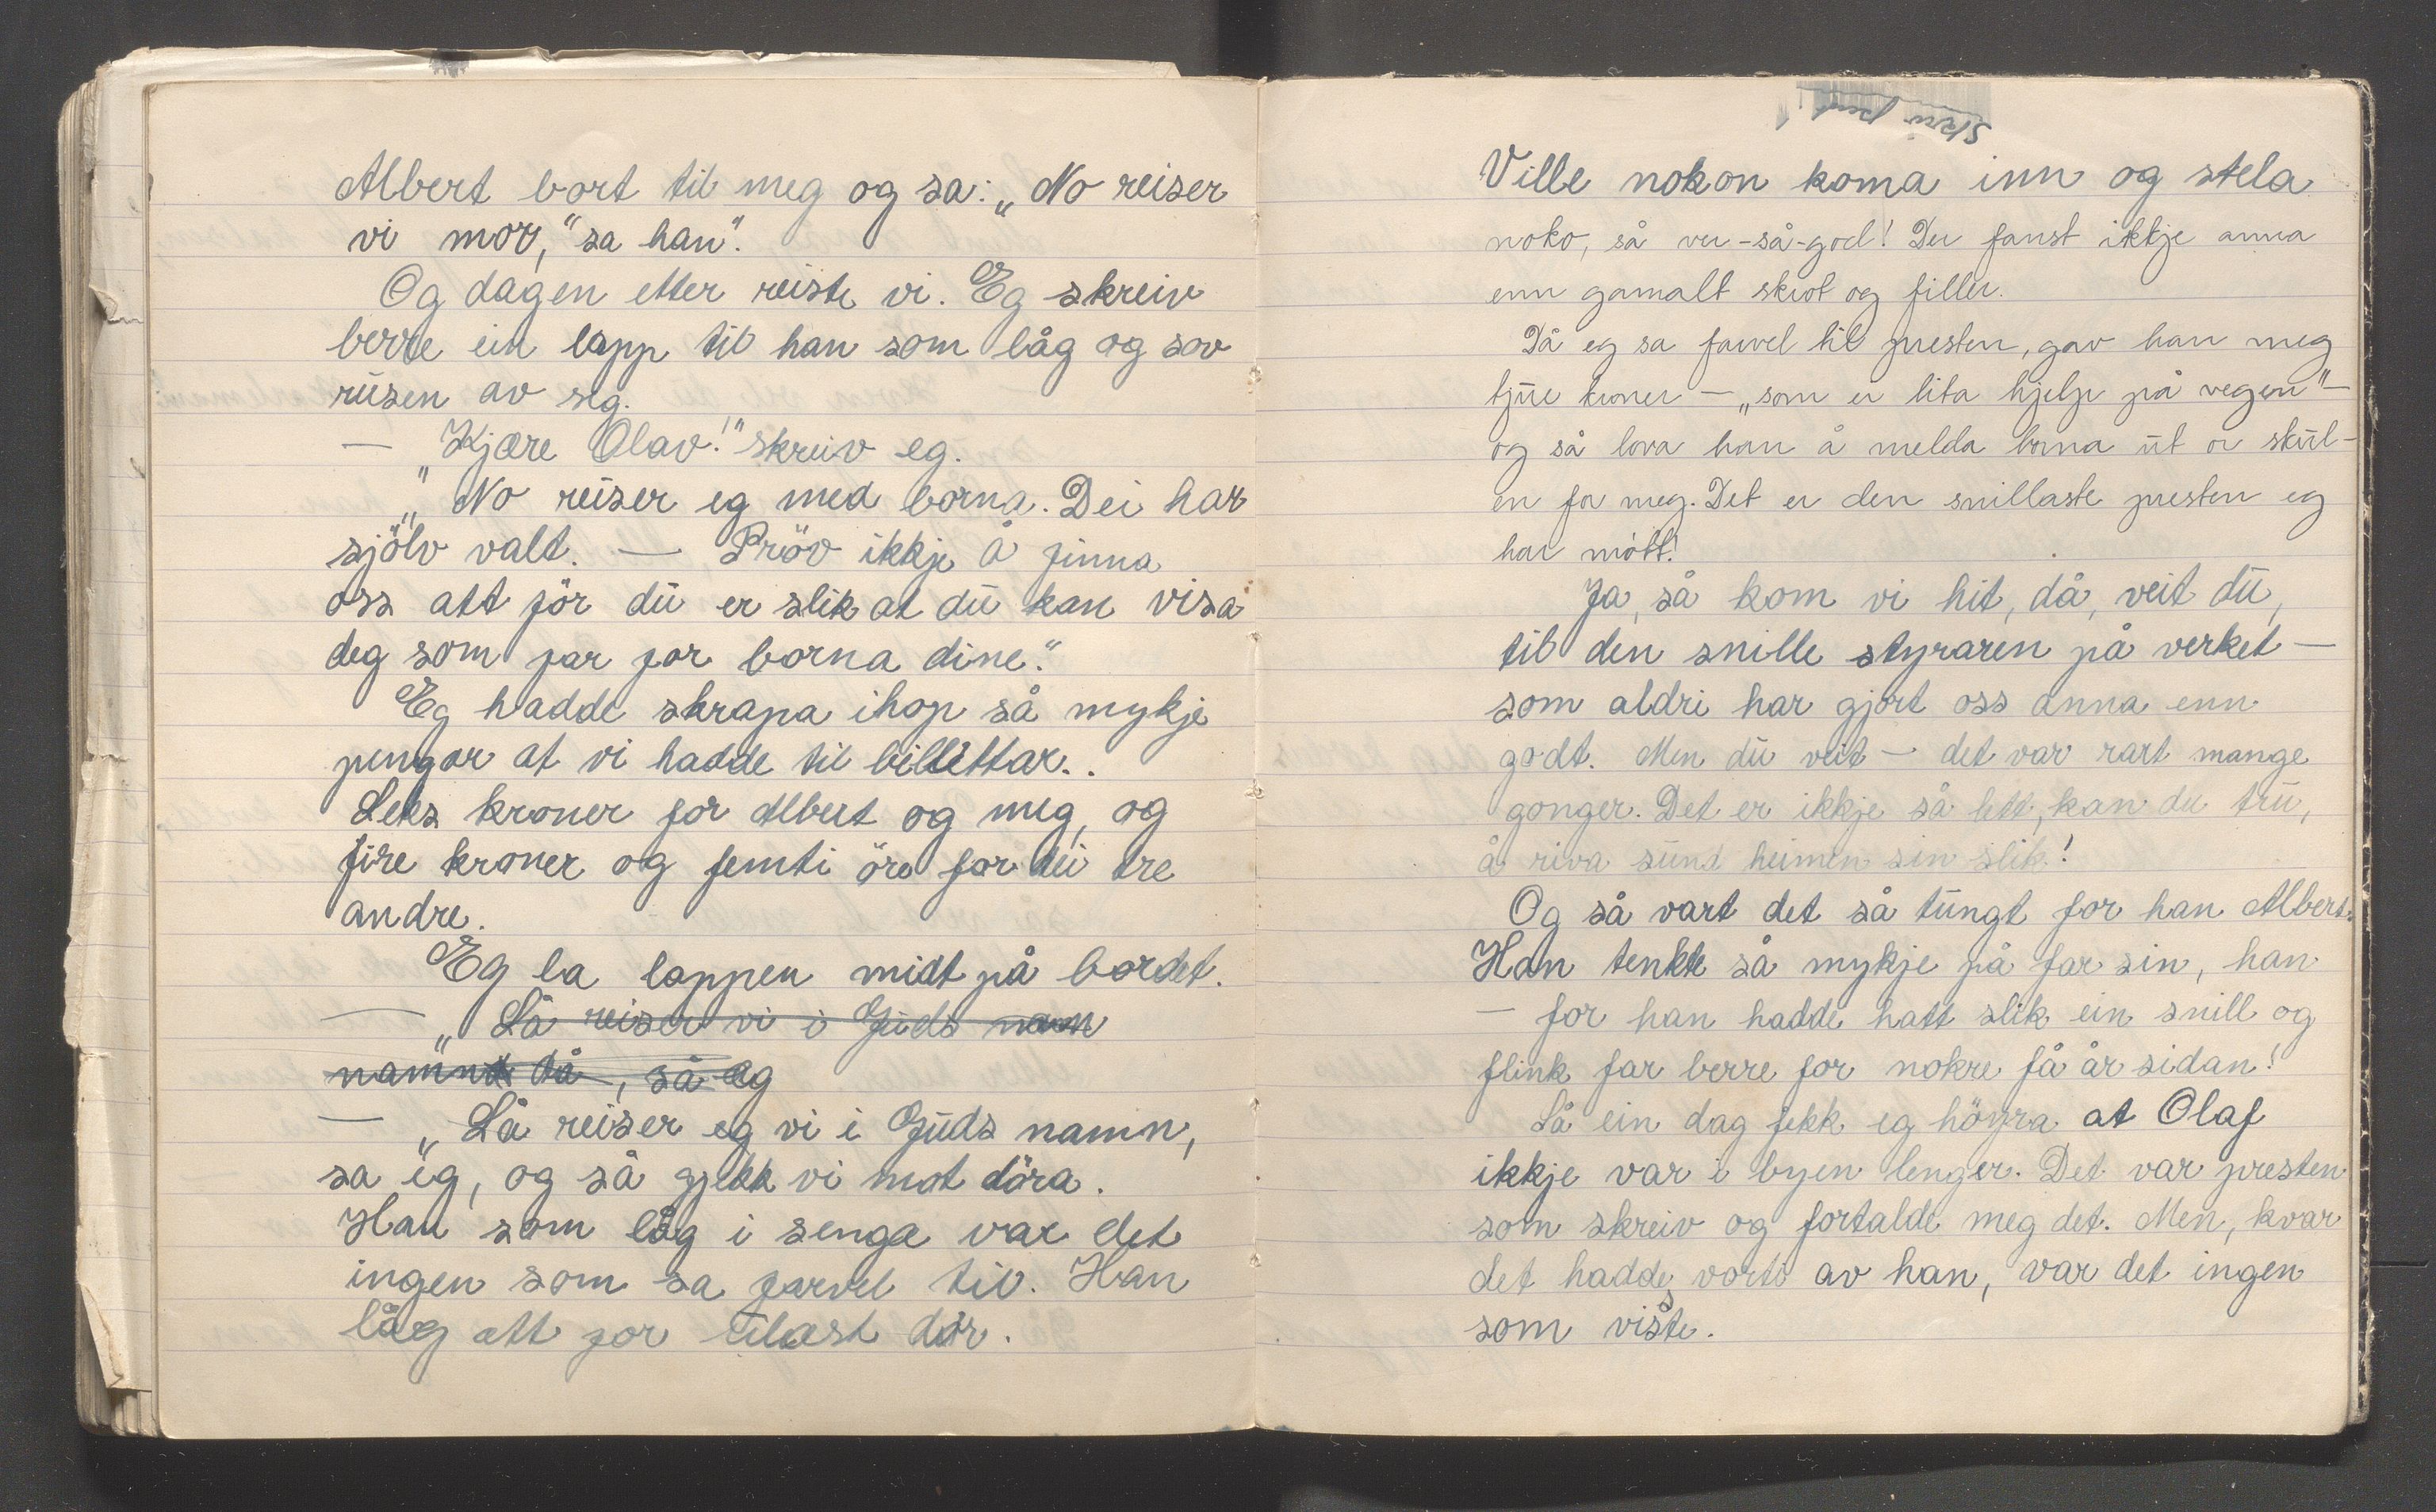 Albert bort til meg og sa: „No reiser
vi mor,“ sa han“.
Og dagen etter reiste vi. Eg skreiv
berre ein lapp til han som låg og sov
rusen av seg.
— „Kjære Olav!“ skreiv eg.
„No reiser eg med borna. Dei har
sjölv valt. — Pröv ikkje å finna
oss attför du er slik at du kan visa
deg som far for borna dine.“
Eg hadde skrapa ihop så mykje
pengar at vi hadde til billettar..
Seks kroner for Albert og meg, og
fire kroner og femti öre for dei tre
andre.
Eg la lappen midt på bordet.
— „Så reiser vi i Guds namn
namn då, så eg
— „Så reiser eg vi i Guds namn,
sa eg, og så gjekk vi mot döra.
Han som låg i senga var det
ingen som sa farvel til. Han
låg att for ulæst dör.
Skriv pent!
Ville nokon koma inn og stela
noko, så ver-så-god! Der fanst ikkje anna
enn gamalt skrot og filler.
Då eg sa farvel til presten, gav han meg
tjue kroner — „som ei lita hjelp på vegen“ —
og så lova han å melda borna ut or skul-
en for meg. Det er den snillaste presten eg
har mött!
Ja, så kom vi hit, då, veit du,
til den snille styraren på verket —
som aldri har gjort oss anna enn
godt. Men du veit — det var rart mange
gonger. Det er ikkje så lett, kan du tru,
å riva sund heimen sin slik!
Og så vart det så tungt for han Albert.
Han tenkte så mykje på far sin, han
— for han hadde hatt slik ein snill og
flink far berre for nokre få år sidan!
Så ein dag fekk eg höyra at Olaf
ikkje var i byen lenger. Det var presten
som skreiv og fortalde meg det. Men, kvar
det hadde vorti av han, var det ingen
som visste.